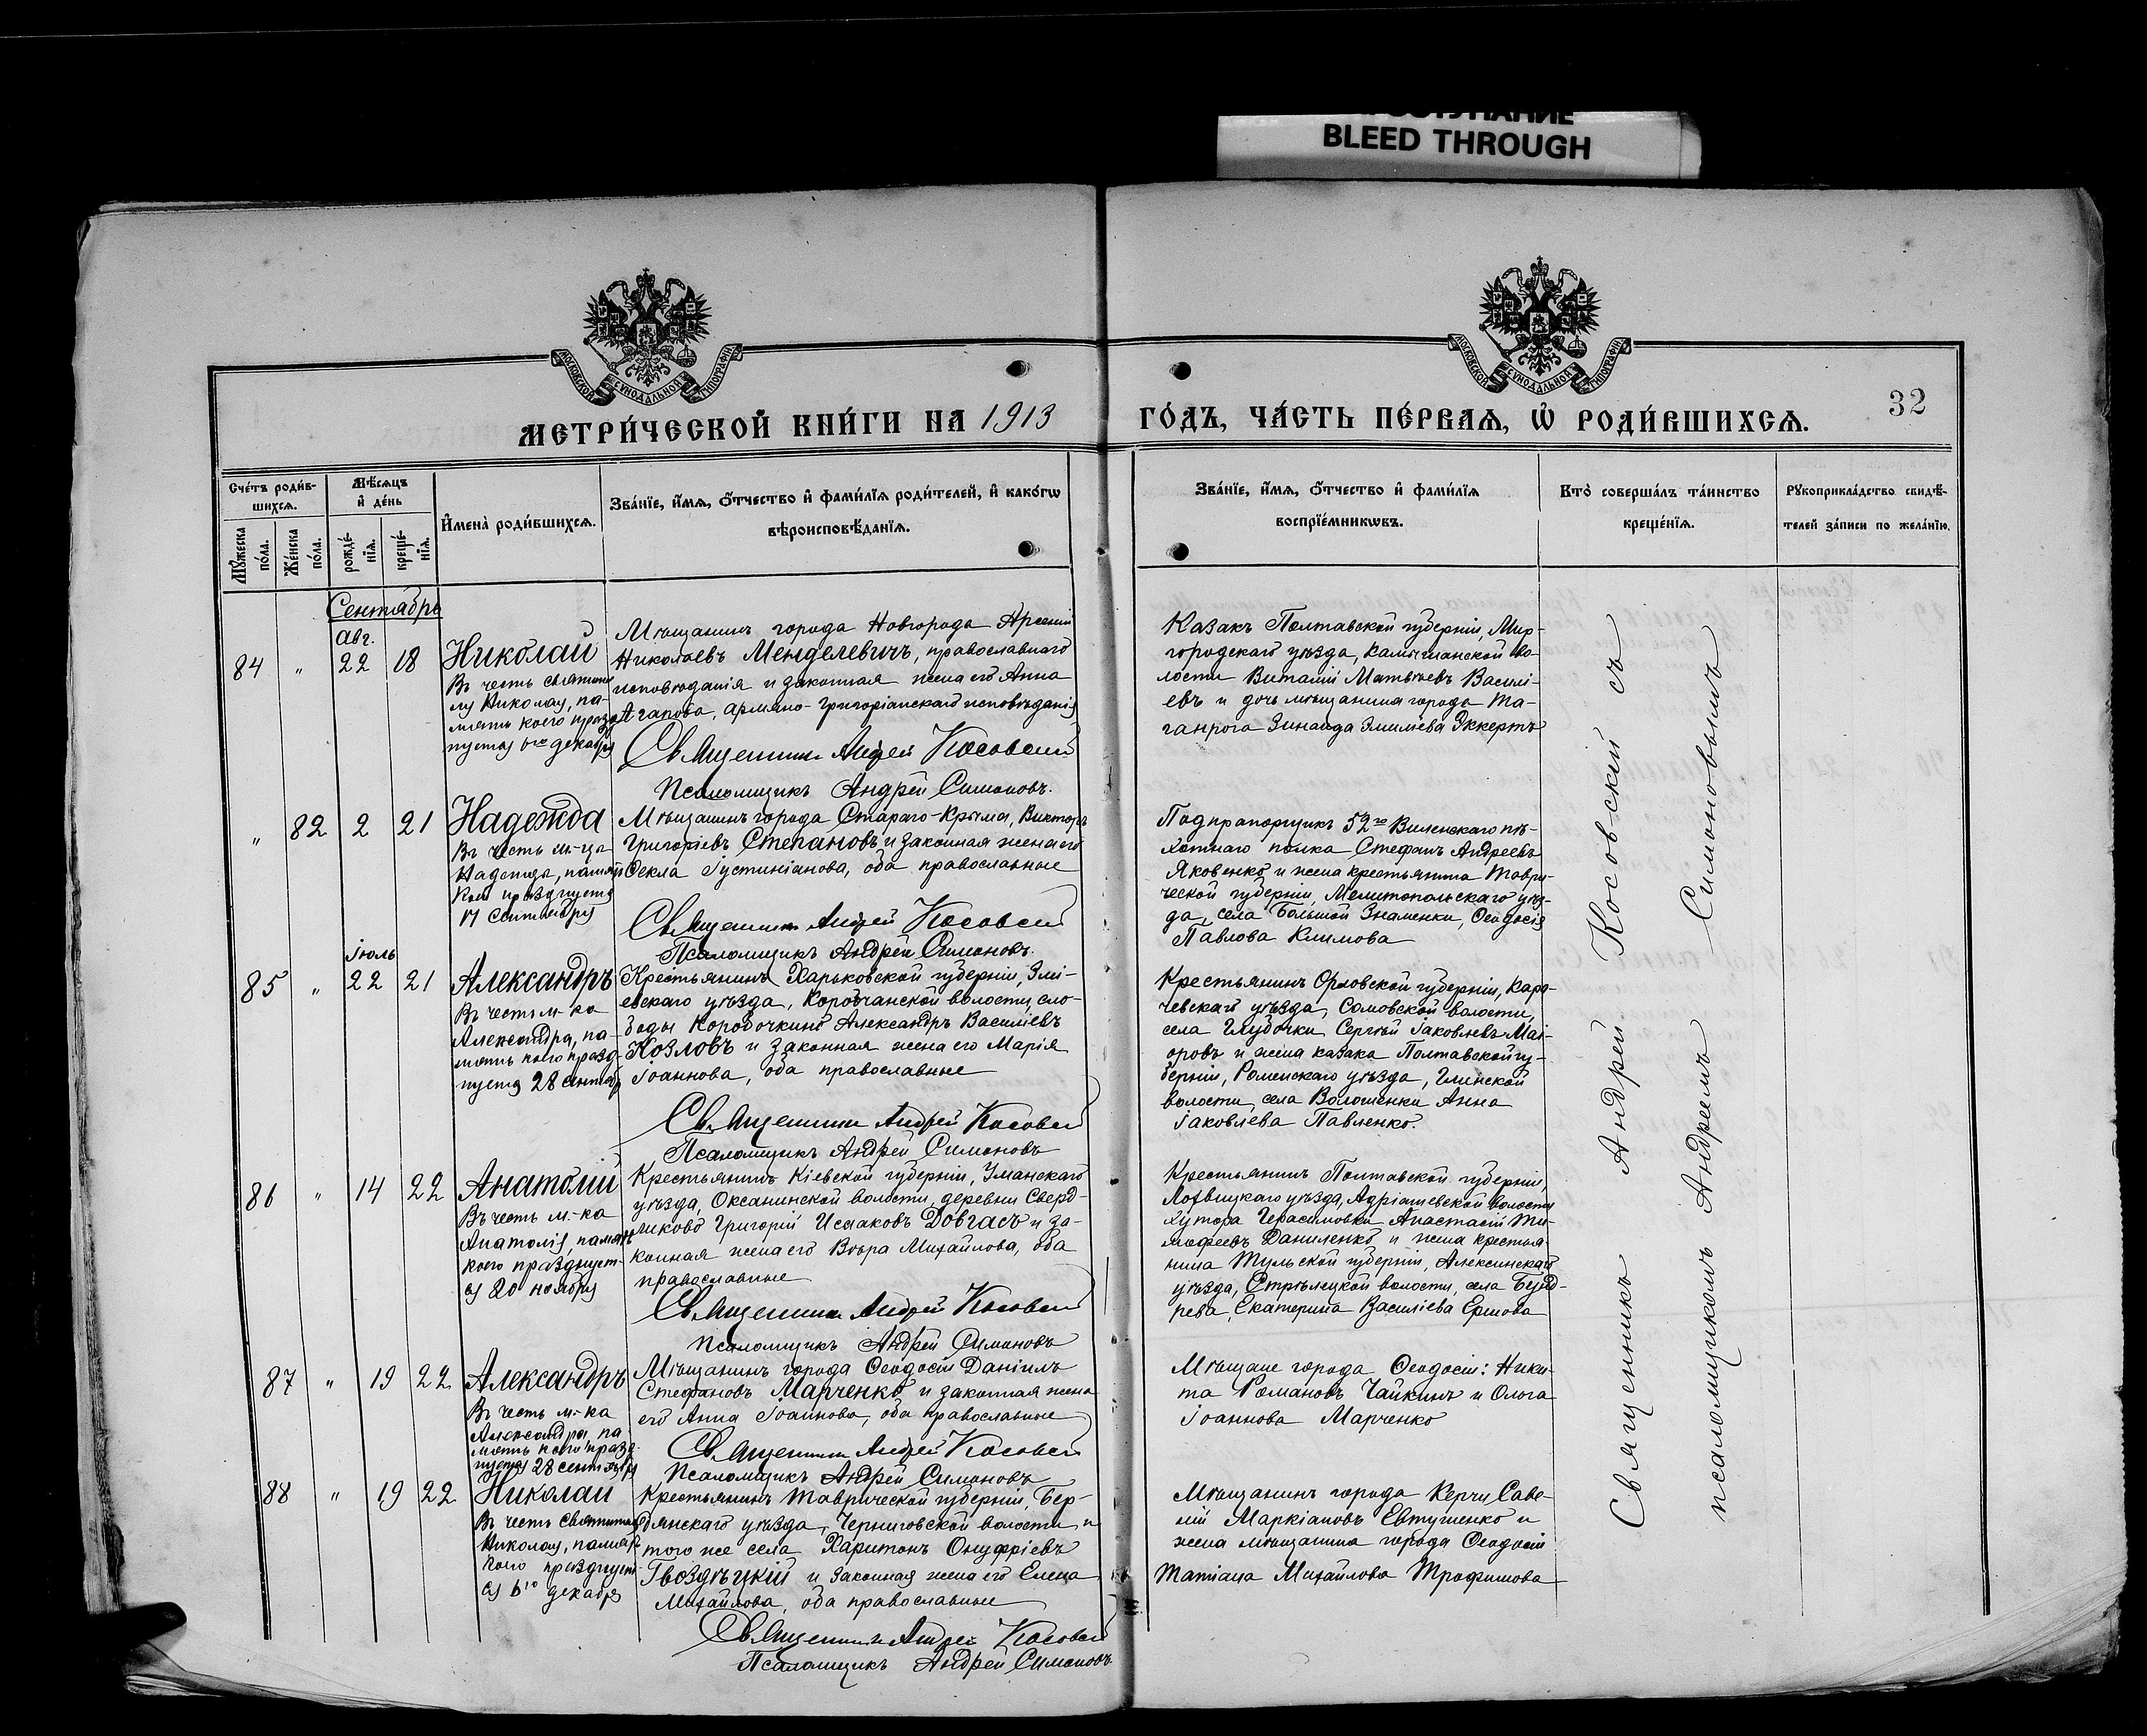 BLEED THROUGH
МОСКОВСКОЙ СѴНОДАЛЬНОЙ ТИПОГРАФІИ
МОСКОВСКОЙ СѴНОДАЛЬНОЙ ТИПОГРАФІИ
МЕТРИ́ЧЕСКОЙ КНИ́ГИ НА 1913
ГО́ДЪ, ЧА́СТЬ ПЕ́РВАѦ, Ѡ҆ РОДИ́ВШИХСѦ.
32
Сче́тъ роди́в-
шихсѧ.
Мѣ́сѧцъ
и҆ де́нь
Мꙋ́жеска
по́ла.
Же́нска
по́ла.
рожде́-
нїѧ.
креще́-
нїѧ.
И҆мена̀ роди́вшихсѧ.
Зва́нїе, и҆́мѧ, ѻ҆́тчество и҆ фами́лїѧ роди́телей, и҆ како́гѡ
вѣроисповѣ́данїѧ.
Зва́нїе, и҆́мѧ, ѻ҆́тчество и҆ фами́лїѧ
воспрїе́мникѡвъ.
Кто̀ соверша́лъ та́инство
креще́нїѧ.
Рꙋкоприкла́дство свидѣ́-
телей за́писи по жела́нїю.
Сентябрь
Авг.
84 " 22 18 Николай
Въ честь святите
лю Николая, па-
мять коего празд
нуется 6го декабря
Мѣщанинъ города Новгорода Арсеній
Николаевъ Менделевичъ, православнаго
исповѣданія и законная жена его Анна
Агапова, армяно-григоріанскаго исповѣданія
Священникъ Андрей Косовскій
Псаломщикъ Андрей Симоновъ.
Казакъ Полтавской губерніи, Мир-
городскаго уѣзда, Камышанской во-
лости Виталій Матвѣевъ Василі-
евъ и дочь мѣщанина города Та-
ганрога Зинаида Эмиліева Эккертъ
" 82 2 21 Надежда
Въ честь м-ца
Надежда, память
коей празднуется
17 Сентября
Мѣщанинъ города Стараго-Крыма, Викторъ
Григоріевъ Степановъ и законная жена его
Ѳекла Іустиніанова, оба православные
Священникъ Андрей Косовскій
Псаломщикъ Андрей Симоновъ.
Подпрапорщикъ 52го Виленскаго пѣ-
хотнаго полка Стефанъ Андреевъ
Яковенко и жена крестьянина Таври-
ческой губерніи, Мелитопольскаго уѣз-
да, села Большой Знаменки, Ѳеодосія
Павлова Климова
Іюль
85 " 22 21 Александръ
Въ честь м-ка
Александра, па-
мять коего празд-
нуется 28 сентяб
Крестьянинъ Харьковской губерніи, Змі-
евскаго уѣзда, Коробчанской волости, сло-
боды Коробочкино Александръ Василіевъ
Козловъ и законная жена его Марія
Іоаннова, оба православные
Священникъ Андрей Косовскій
Псаломщикъ Андрей Симоновъ
Крестьянинъ Орловской губерніи, Кара-
чевскаго уѣзда, Самовской волости,
села Глубочки Сергѣй Іаковлевъ Маі-
оровъ и жена казака Полтавской гу-
берніи, Роменскаго уѣзда, Глинской
волости, села Волошенки Анна
Іаковлева Павленко.
86 " 14 22 Анатолій
Въ честь м-ка
Анатолія, память
коего празднует-
ся 20 ноября
Крестьянинъ Кіевской губерніи, Уманскаго
уѣзда, Оксанинской волости, деревни Сверд-
ликово Григорій Исааковъ Довгась и за-
конная жена его Вѣра Михайлова, оба
православные
Священникъ Андрей Косовскій
Псаломщикъ Андрей Симоновъ
Крестьянинъ Полтавской губерніи,
Лохвицкаго уѣзда, Адріашевской волости
хутора Герасимовки Анастасій Ти-
мофеевъ Даниленко и жена крестья-
нина Тульской губерніи, Алексинскаго
уѣзда, Стрѣлецкой волости, села
Екатерина Василіева Ершова
87 " 19 22 Александръ
Въ честь м-ка
Александра, па-
мять коего празд-
нуется 28 сентября
Мѣщанинъ города Ѳеодосіи Даніилъ
Стефановъ Марченко и законная жена
его Анна Іоаннова, оба православные
Священникъ Андрей Косовскій
Псаломщикъ Андрей Симоновъ
Мѣщане города Ѳеодосіи: Ники-
та Романовъ Чайкинъ и Ольга
Іоаннова Марченко
88 " 19 22 Николай
Въ честь Святителя
Николая, память
коего празднует
ся 6го декабря
Крестьянинъ Таврической губерніи, Бер-
дянскаго уѣзда, Черниговской волости и
того же села Харитонъ Онуфріевъ
Гвоздѣцкій и законная жена его Елена
Михайлова, оба православные
Священникъ Андрей Косовскій
Псаломщикъ Андрей Симоновъ.
Мѣщанинъ города Керчи Саве-
лій Маркіановъ Евтушенко и
жена мѣщанина города Ѳеодосіи
Татіана Михайлова Трофимова
Священникъ Андрей Косовскій съ
псаломщикомъ Андреемъ Симоновымъ